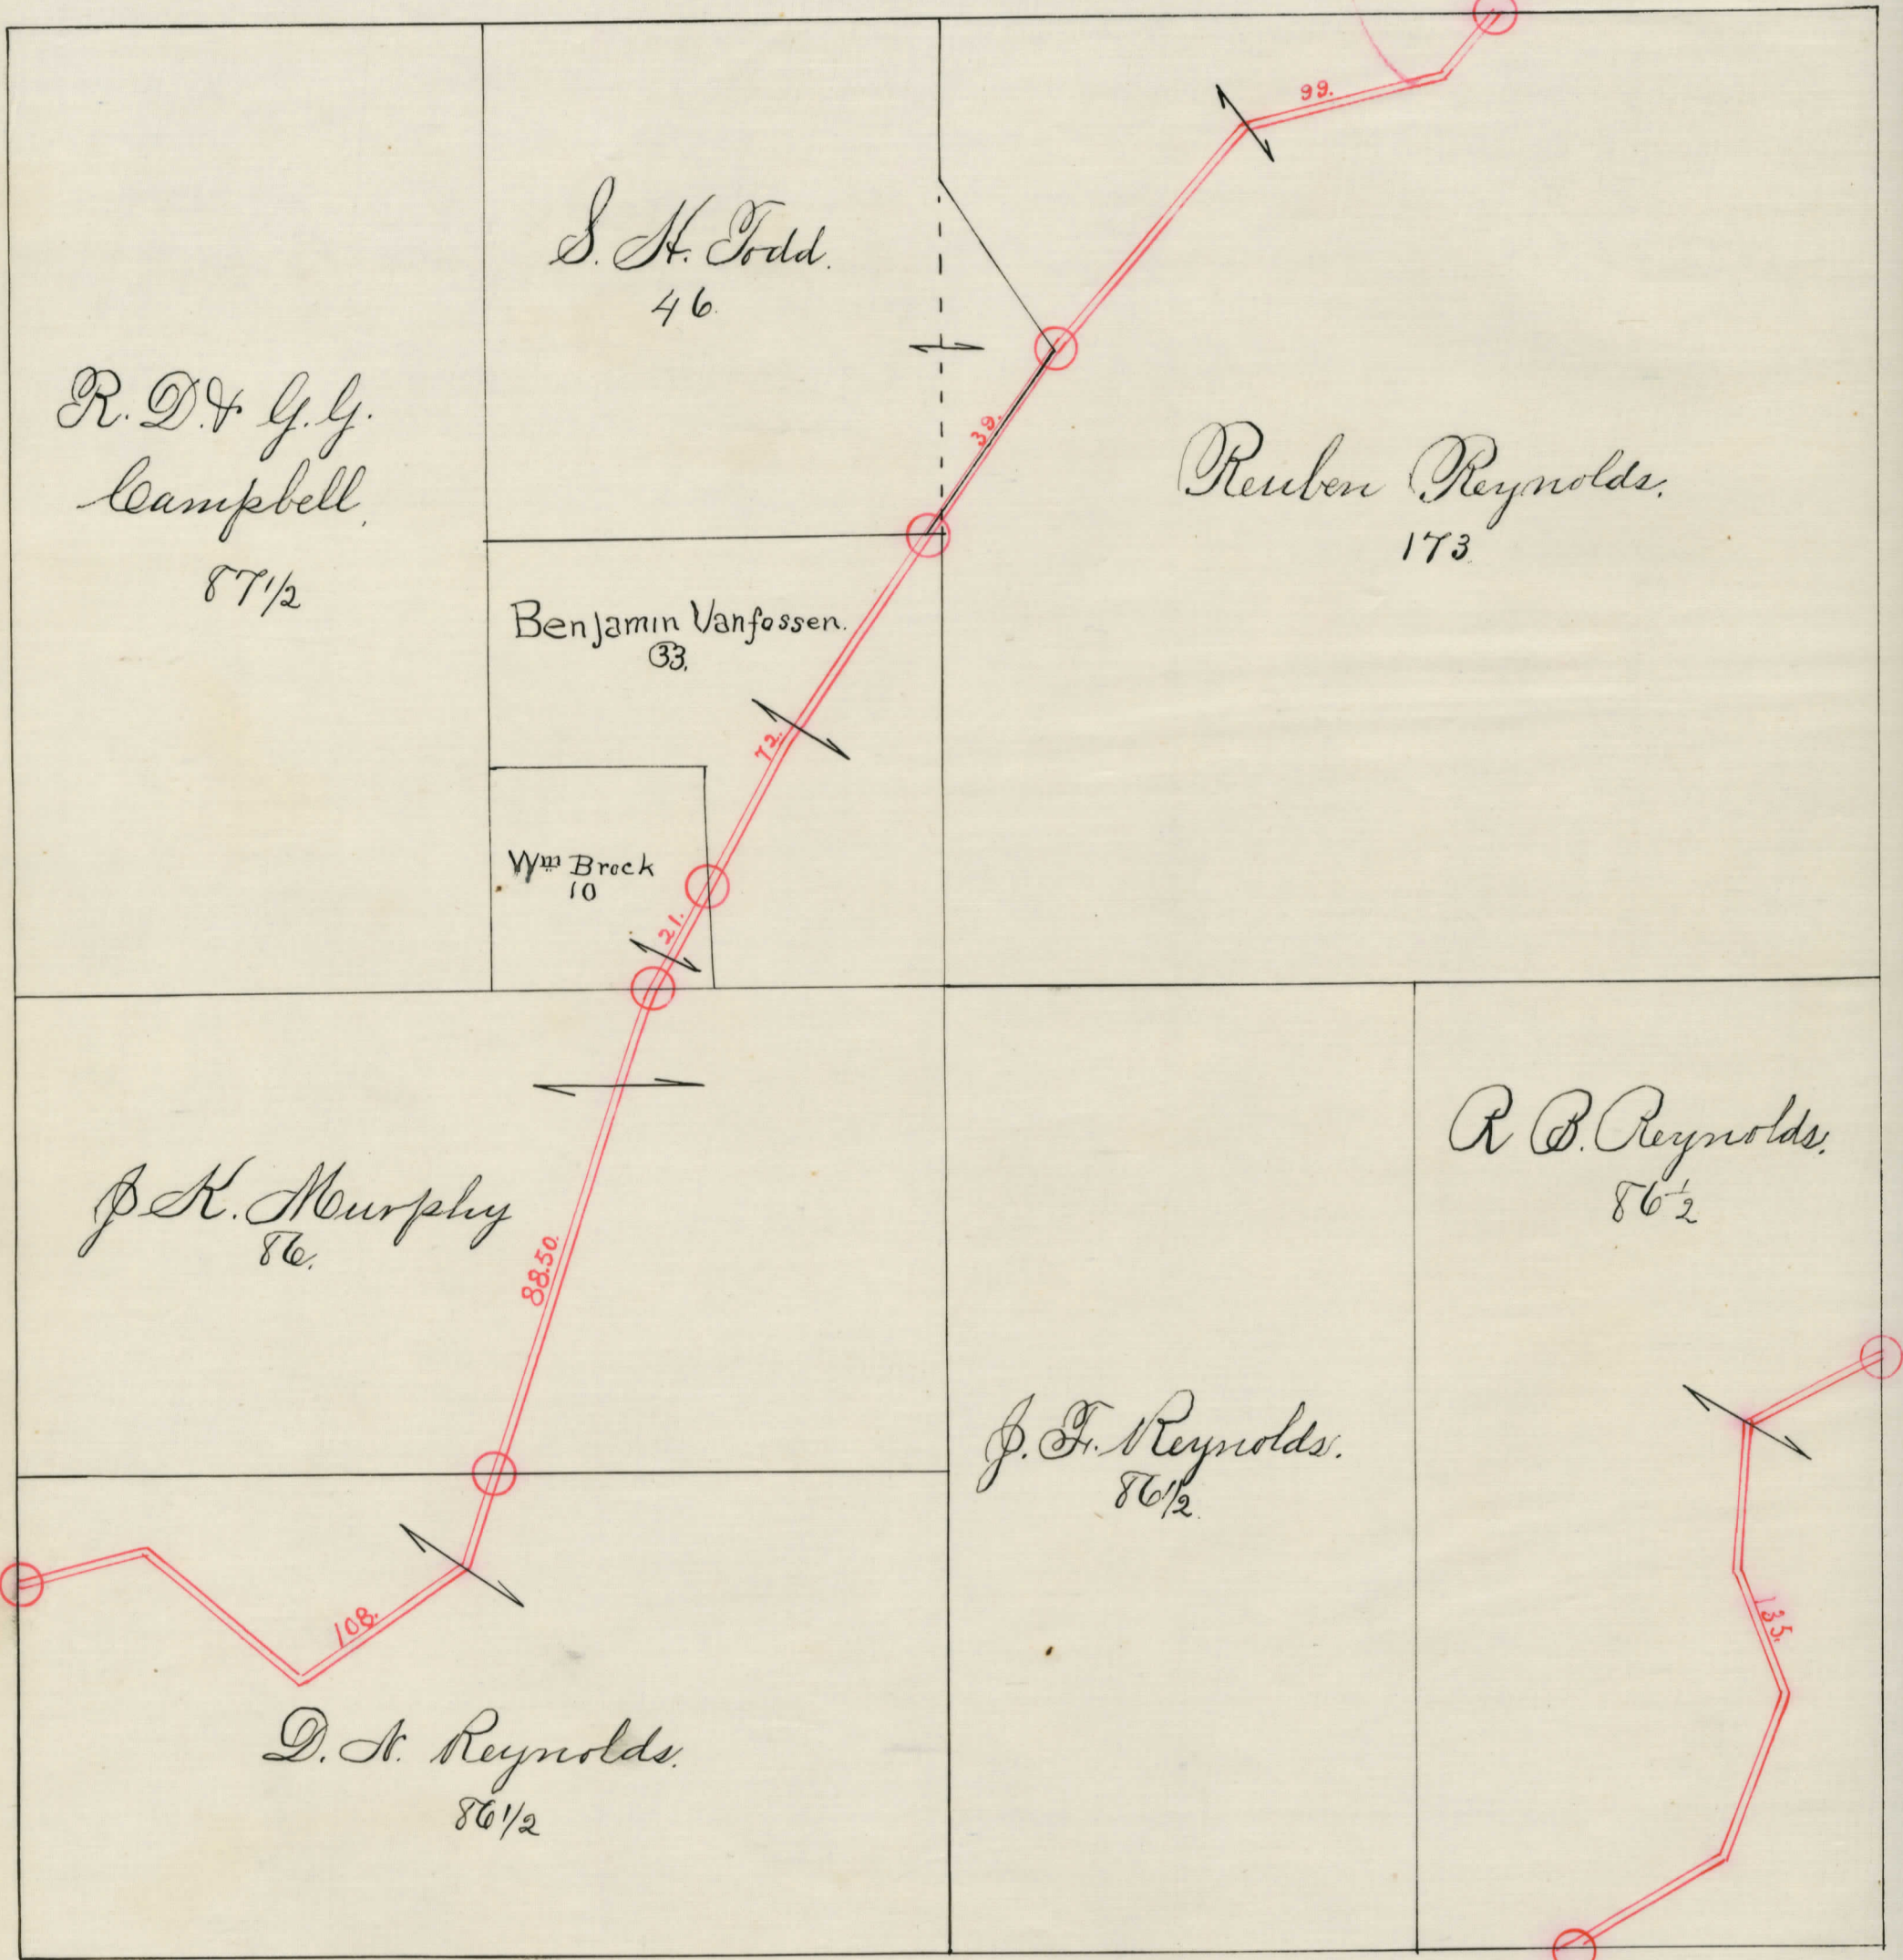 99.
S. H. Todd.
46.
R. D. & G. G.
Campbell.
87 1/2
39.
Reuben Reynolds.
173
Benjamin Vanfossen.
33.
72.
Wm Brock
10
21.
J K. Murphy
86.
88.50.
R B. Reynolds.
86 1/2
J. F. Reynolds.
86 1/2.
135.
108.
D. N. Reynolds.
86 1/2